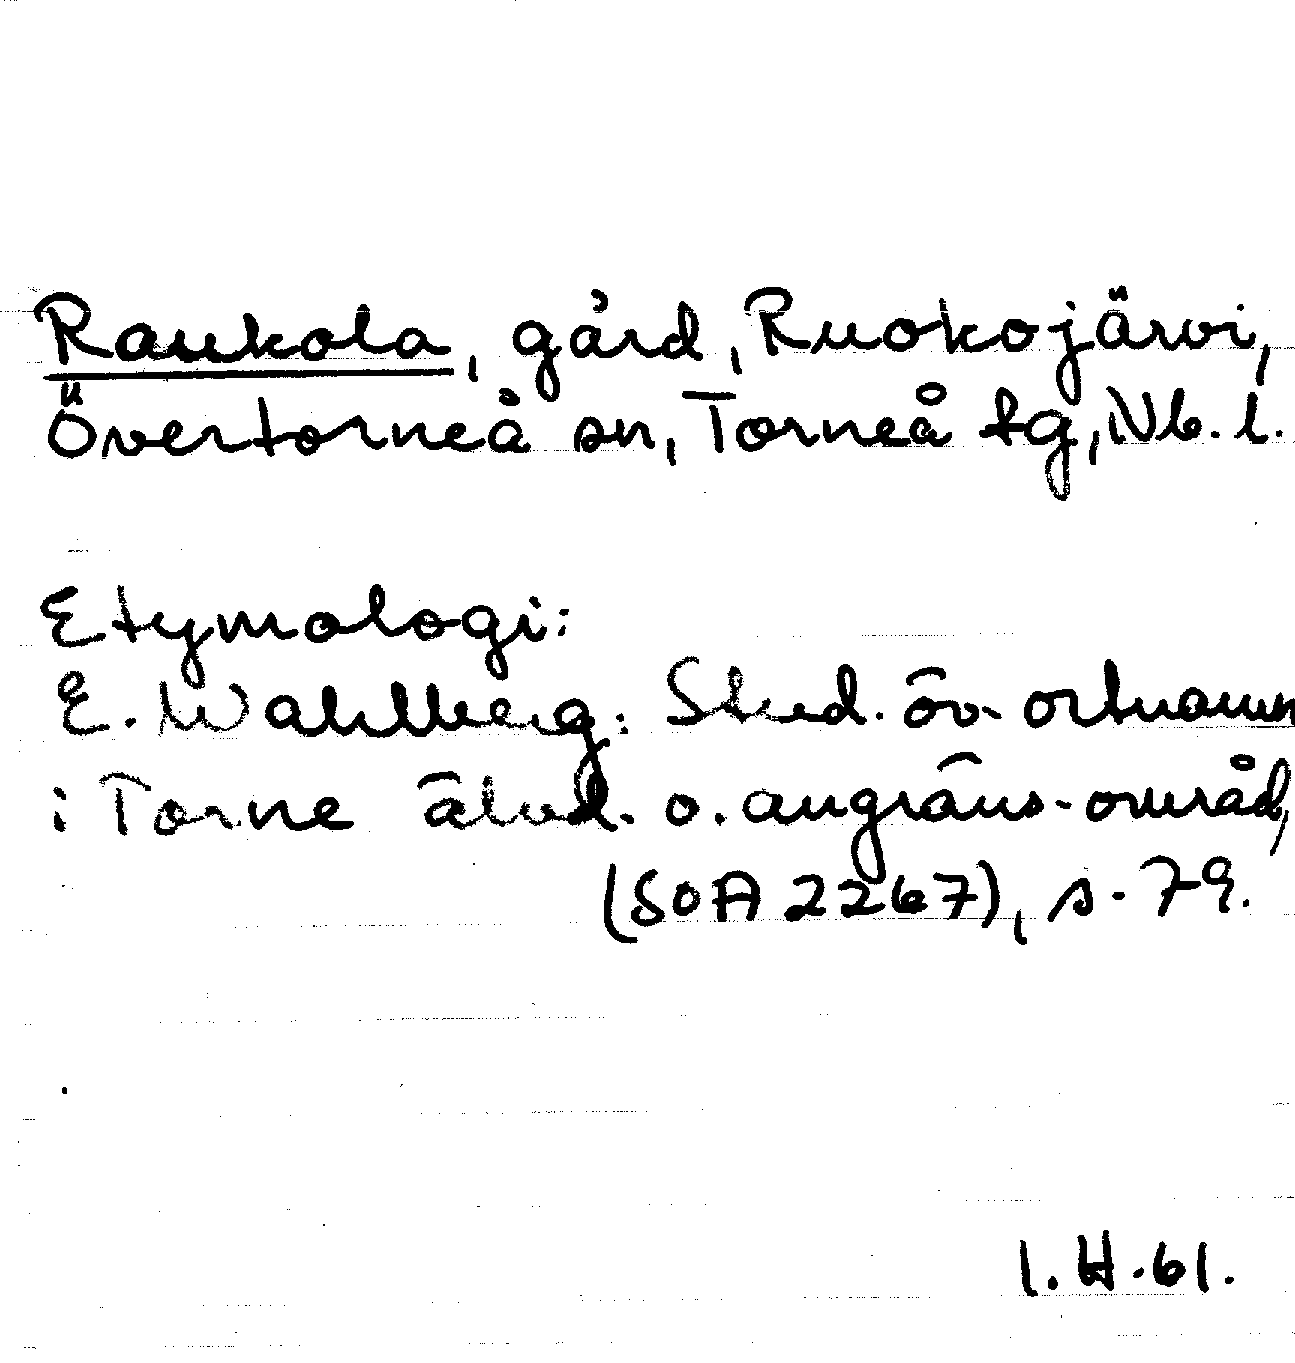 Raukola, gård, Ruokojärvi,
Övertorneå sn, Torneå tg, Nb. l.
Etymologi:
E. Wahlberg: Stud. öv. ortnamn
i Torne älvd. o. angräns. områd,
(SOA 2267), s. 79.
I. H. 61.